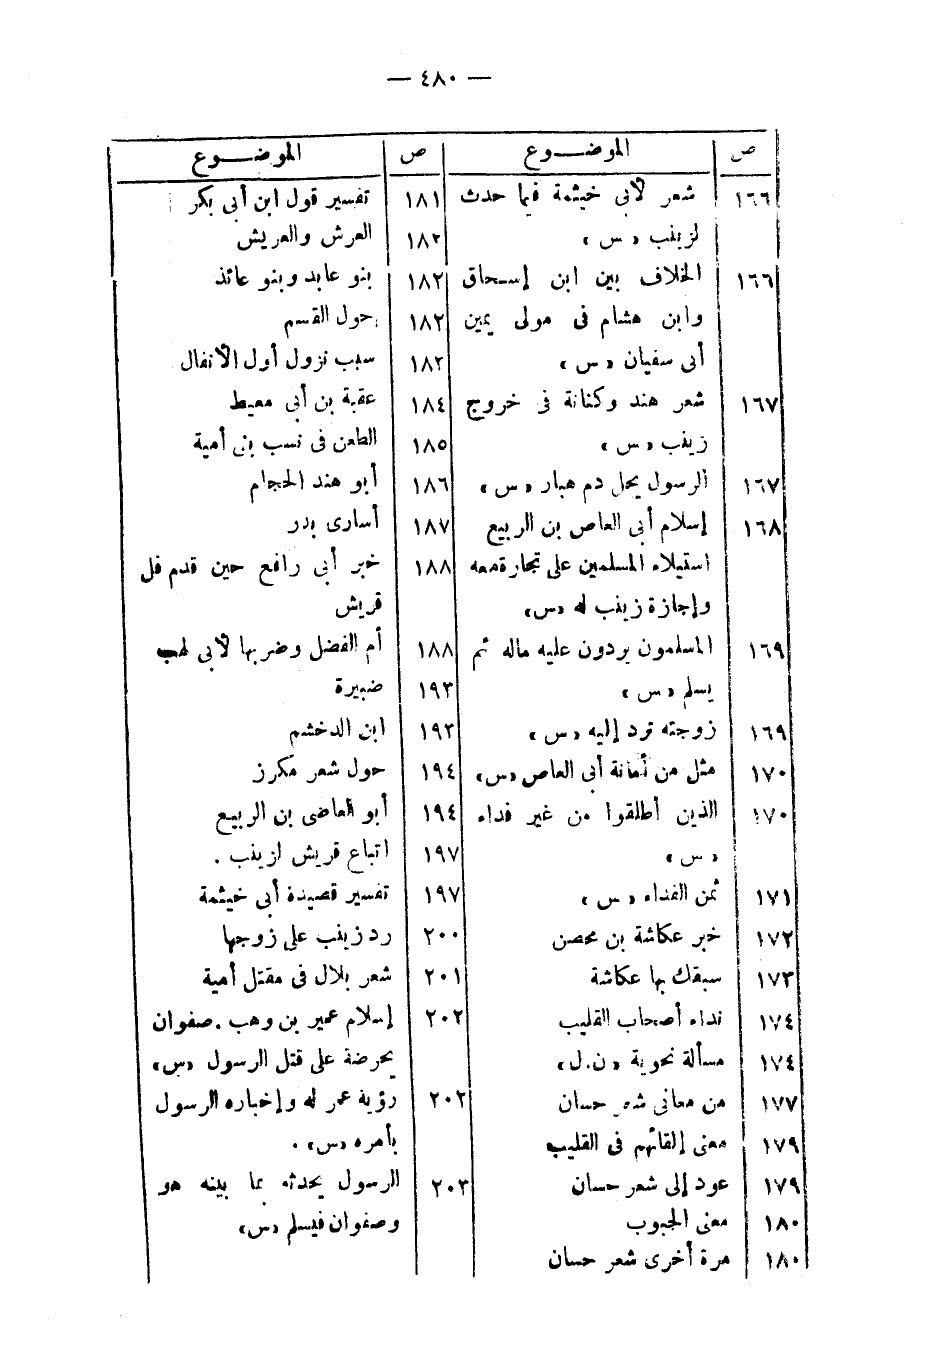 — ٤٨٠ —
ص الموضــوع
١٦٦ شعر لأبى خيثمة فيما حدث
لزينب «س»
١٦٦ الخلاف بين ابن إسحاق
وابن هشام فى مولى يمين
أبى سفيان «س»
١٦٧ شعر هند وكنانة فى خروج
زينب «س»
١٦٧ الرسول يحل دم هبار «س»
١٦٨ إسلام أبى العاص بن الربيع
استيلاء المسلمين على تجارة معه
وإجازة زينب له «س»
١٦٩ المسلمون يردون عليه ماله ثم
يسلم «س»
١٦٩ زوجته ترد إليه «س»
١٧٠ مثل من أمانة أبى العاص «س»
١٧٠ الذين أطلقوا من غير فداء
«س»
١٧١ ثمن الفداء «س»
١٧٢ خبر عكاشة بن محصن
١٧٣ سبقك بها عكاشة
١٧٤ نداء أصحاب القليب
١٧٤ مسألة نحوية «ن.ل»
١٧٧ من معانى شعر حسان
١٧٩ معنى إلقائهم فى القليب
١٧٩ عود إلى شعر حسان
١٨٠ معنى الجبوب
١٨٠ مرة أخرى شعر حسان
ص الموضــوع
١٨١ تفسير قول ابن أبى بكر
١٨٢ العرش والعريش
١٨٢ بنو عابد وبنو عائذ
١٨٢ حول القسم
١٨٢ سبب نزول أول الأنفال
١٨٤ عقبة بن أبى معيط
١٨٥ الطعن فى نسب بنى أمية
١٨٦ أبو هند الحجام
١٨٧ أسارى بدر
١٨٨ خبر أبى رافع حين قدم فل
قريش
١٨٨ أم الفضل وضربها لأبى لهب
١٩٣ ضبيرة
١٩٣ ابن الدخشم
١٩٤ حول شعر مكرز
١٩٤ أبو العاضى بن الربيع
١٩٧ اتباع قريش لزينب .
١٩٧ تفسير قصيدة أبى خيثمة
٢٠٠ رد زينب على زوجها
٢٠١ شعر بلال فى مقتل أمية
٢٠٢ إسلام عمير بن وهب . صفوان
يحرضة على قتل الرسول «س»
٢٠٢ رؤية عمر له وإخباره الرسول
بأمره «س» .
٢٠٣ الرسول يحدثه بما بينه هو
وصفوان فيسلم «س»